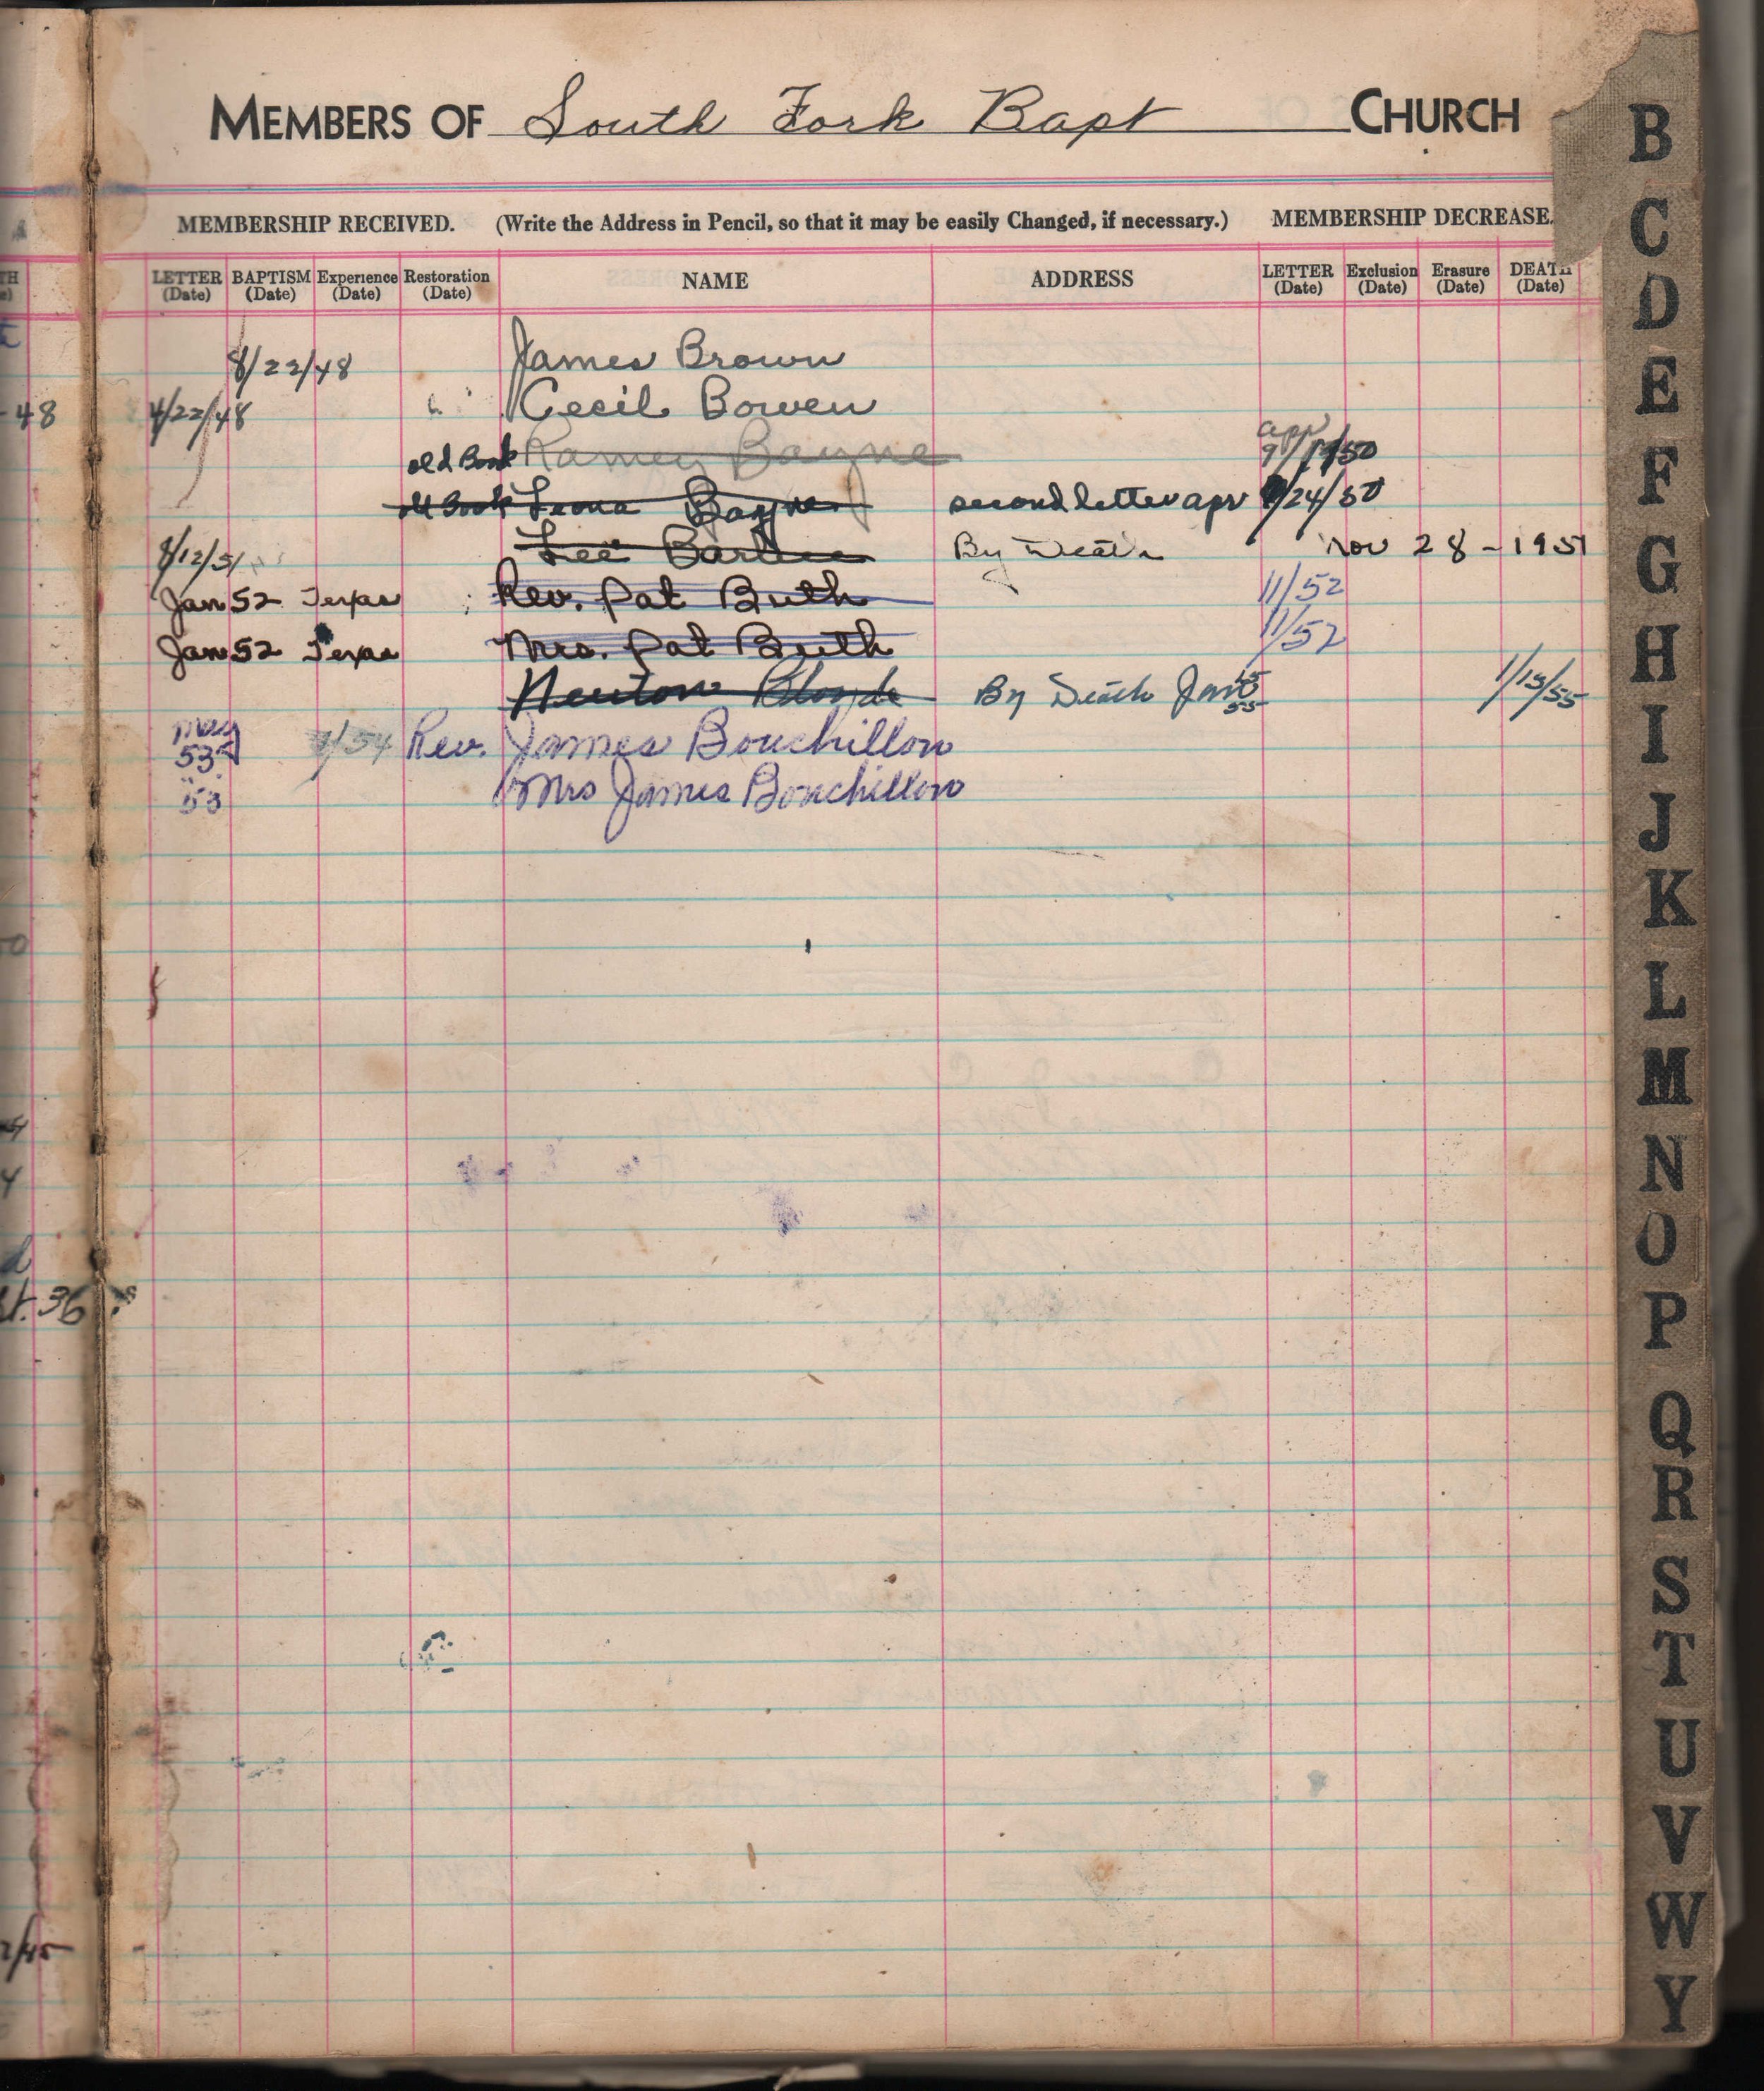 MEMBERS OF South Fork Bapt CHURCH
MEMBERSHIP RECEIVED. (Write the Address in Pencil, so that it may be easily Changed, if necessary.) MEMBERSHIP DECREASE.
LETTER (Date) BAPTISM (Date) Experience (Date) Restoration (Date) NAME ADDRESS LETTER (Date) Exclusion (Date) Erasure (Date) DEATH (Date)
8/22/48 James Brown
48 4/22/48 Cecil Bowen
old Book Ramey Bayne apr /50
old Book Leona Bayne second letter apr /24/50
8/12/51 Lee By Death Nov 28-1951
Jan 52 Texas Rev. Pat Buth 11/52
Jan 52 Texas Mrs. Pat Buth 11/52
Newton By Death Jan 55 1/15/55
May 53 /54 Rev. James Bouchillon
" 53 Mrs James Bouchillon
36
B
C
D
E
F
G
H
I
J
K
L
M
N
O
P
Q
R
S
T
U
V
W
Y